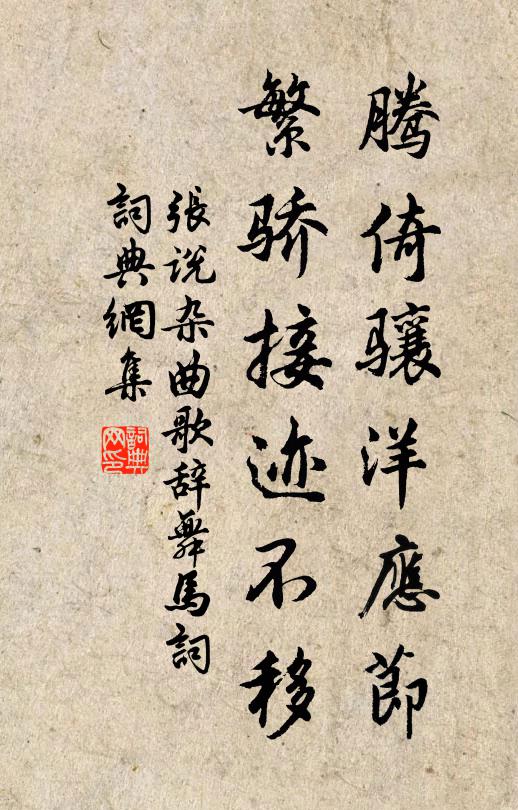 腾倚骧洋應節
繁骄接迹不移
張说杂曲歌辞舞馬詞
詞典網集
詞典网印